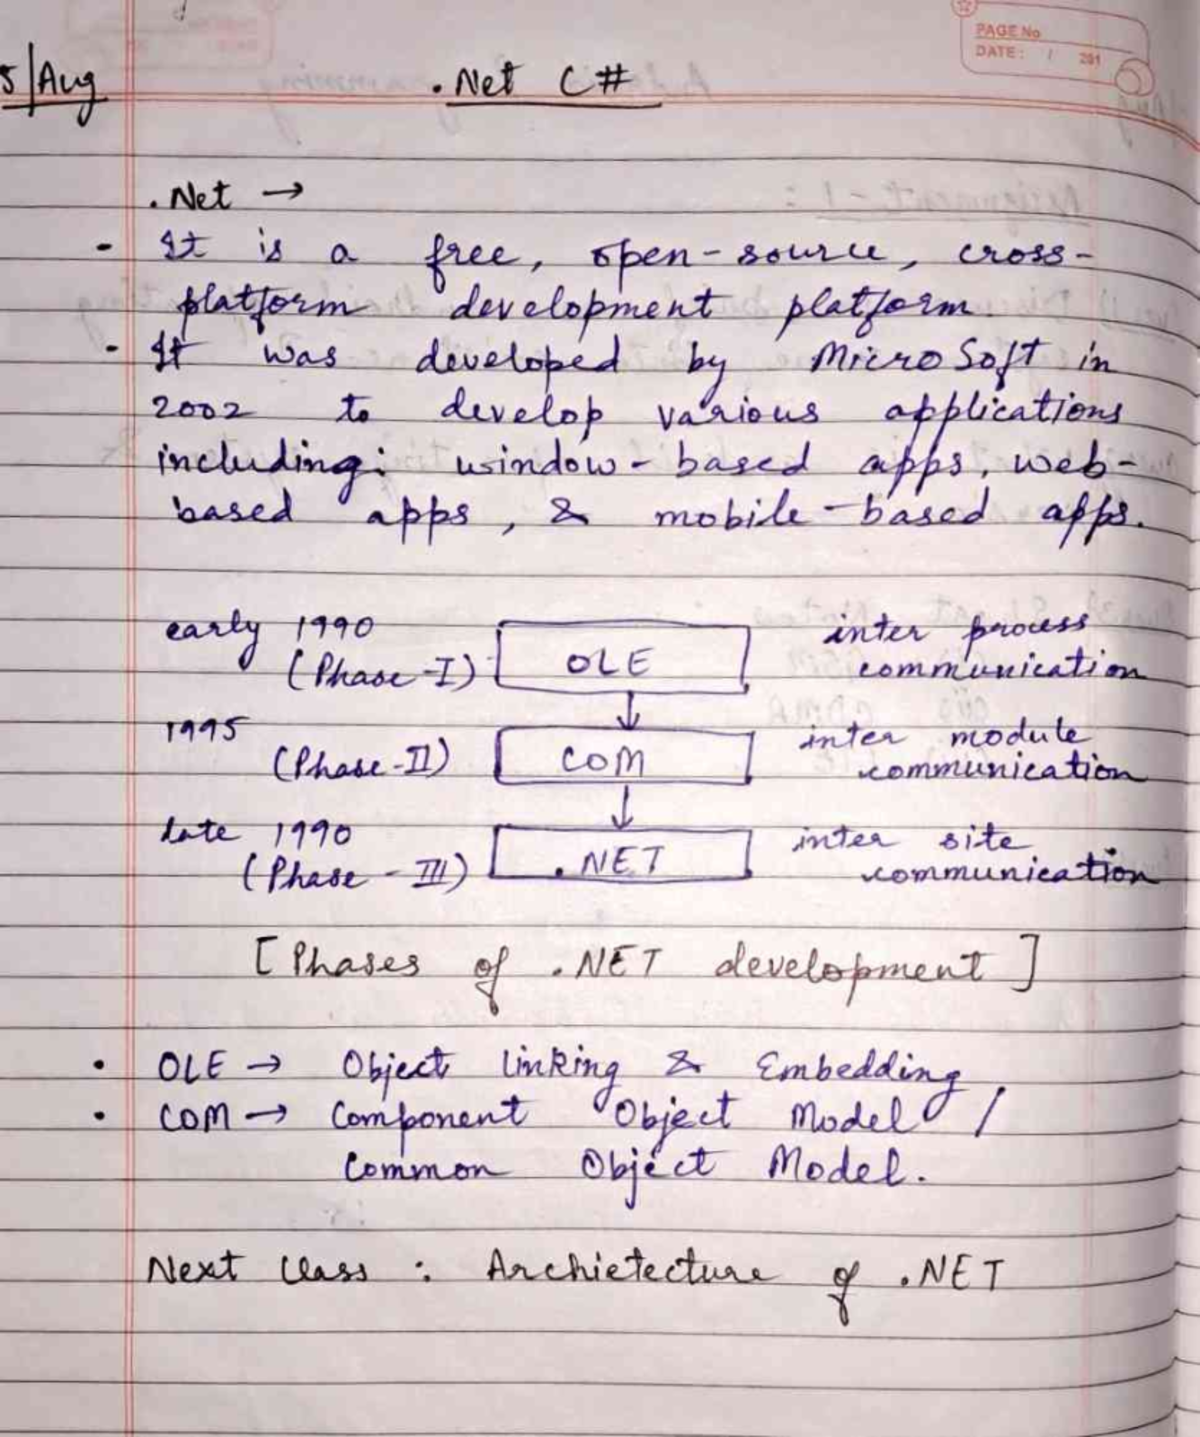 PAGE No
DATE: / 201
5/Aug .Net C#
.Net →
- It is a free, open-source, cross-
platform development platform.
- It was developed by MicroSoft in
2002 to develop various applications
including: window-based apps, web-
based apps, & mobile-based apps.
early 1990 inter process
(Phase-I) OLE communication
↓
1995 inter module
(Phase-II) COM communication
↓
late 1990 inter site
(Phase-III) .NET communication
[Phases of .NET development]
• OLE → Object linking & Embedding
• COM → Component Object Model /
Common Object Model.
Next Class : Archietecture of .NET